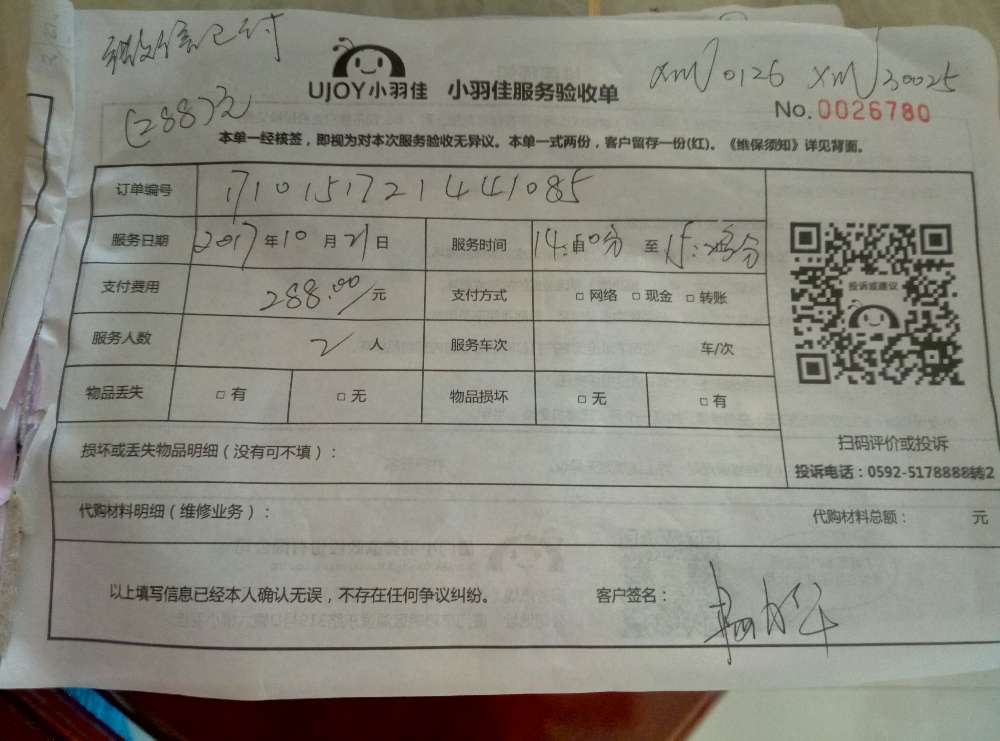 微信已付
(288)元
UJOY小羽佳 小羽佳服务验收单
xmJ0126 xmJ30025
No.0026780
本单一经核签，即视为对本次服务验收无异议。本单一式两份，客户留存一份(红)。《维保须知》详见背面。
订单编号 171015172144 1085
服务日期 2017年10月21日 服务时间 14: 至15:
支付费用 288.00元 支付方式 □ 网络 □ 现金 □ 转账
服务人数 2人 服务车次 车/次
物品丢失 □ 有 □ 无 物品损坏 □ 无 □ 有
投诉或建议
扫码评价或投诉
投诉电话：0592-5178888转2
损坏或丢失物品明细（没有可不填）：
代购材料明细（维修业务）： 代购材料总额： 元
以上填写信息已经本人确认无误，不存在任何争议纠纷。 客户签名：